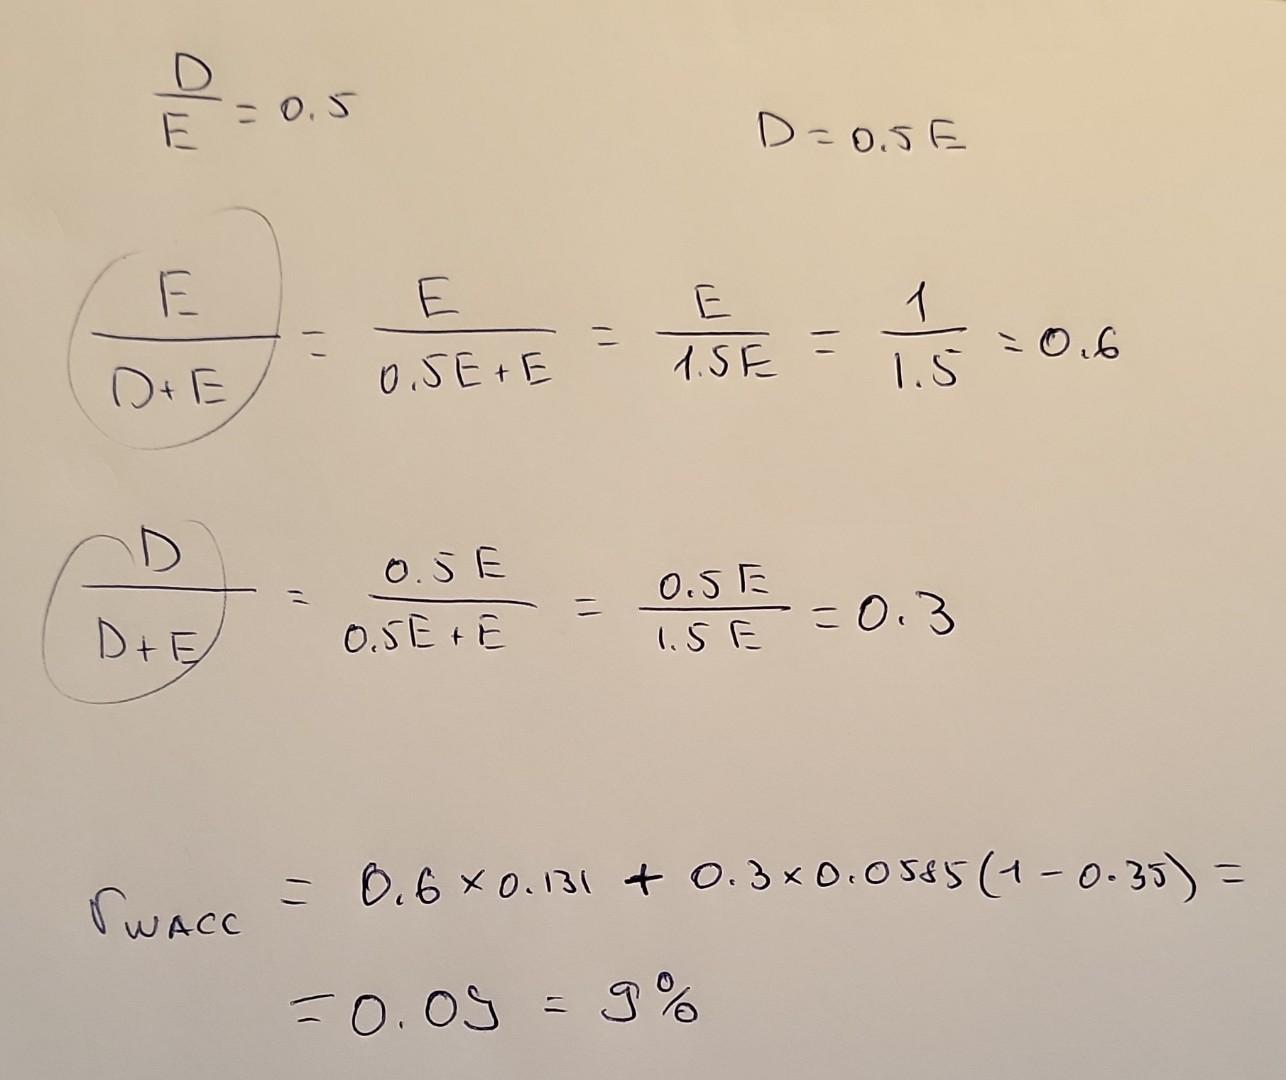 D/E = 0.5    D = 0.5E
E/(D+E) = E/(0.5E+E) = E/1.5E = 1/1.5 = 0.6
D/(D+E) = 0.5E/(0.5E+E) = 0.5E/1.5E = 0.3
r_WACC = 0.6 × 0.131 + 0.3 × 0.0585(1 - 0.35) =
= 0.09 = 9%